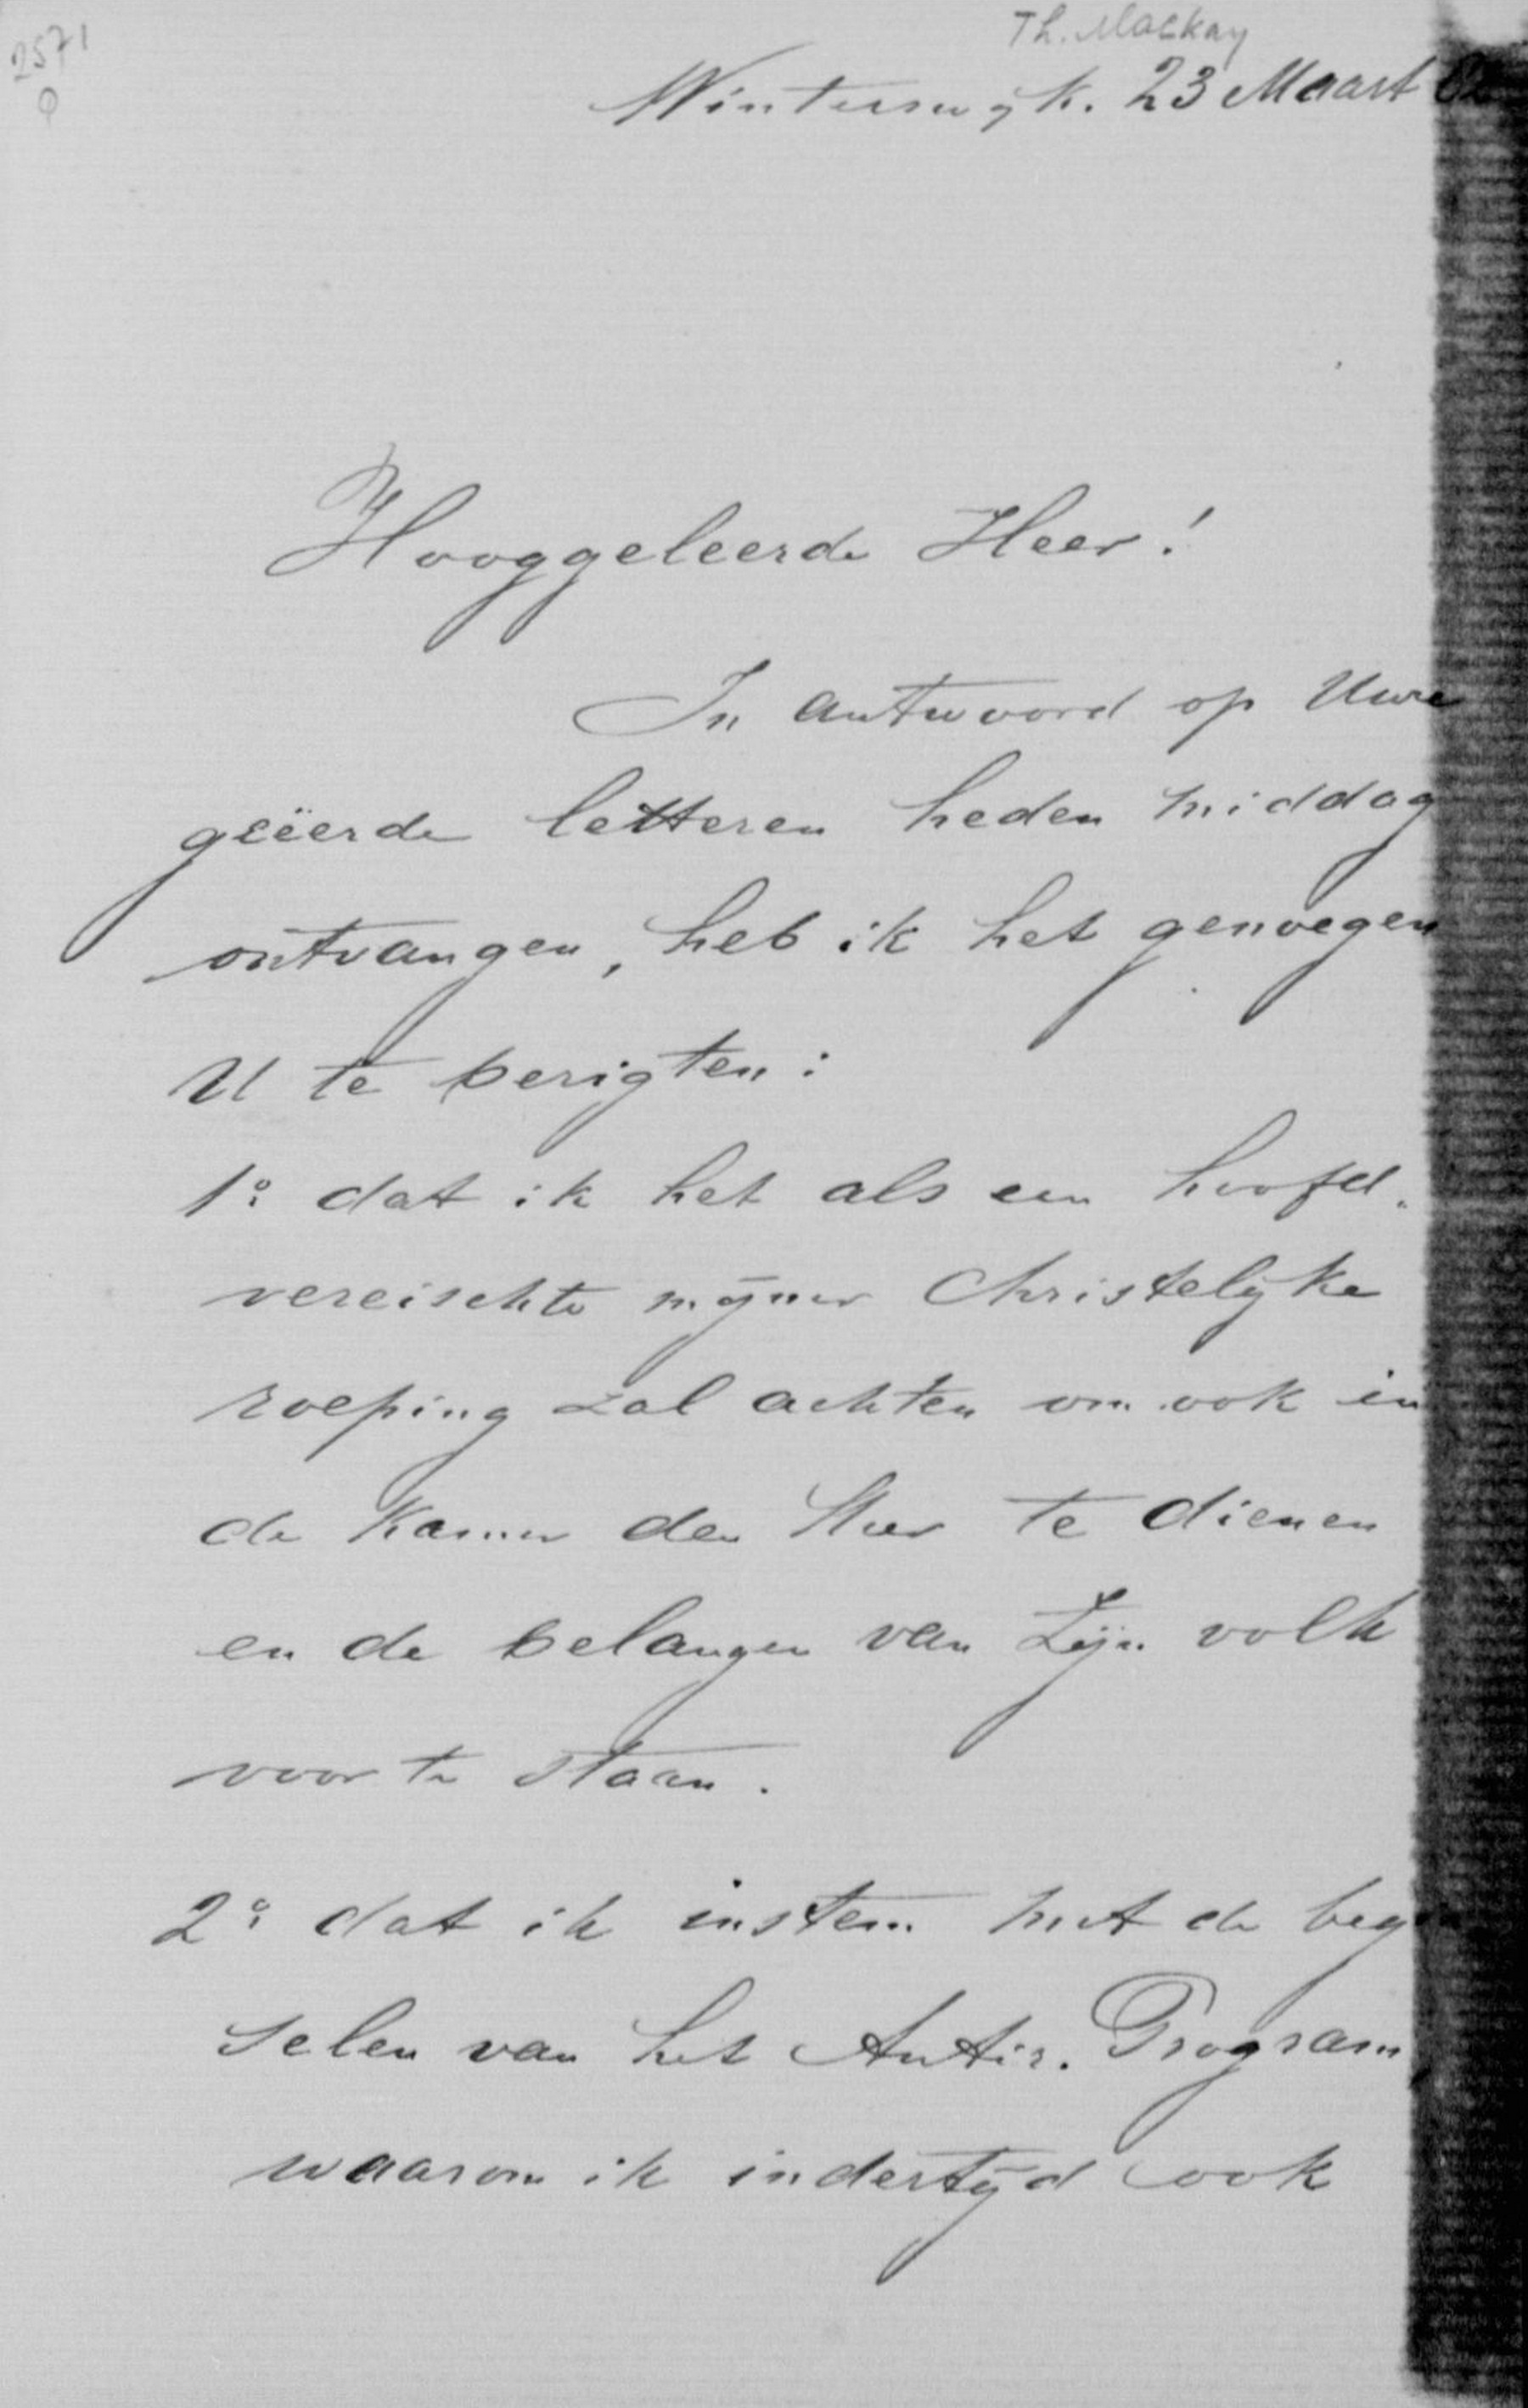 2571
Th. Mackay
Winterswyk. 23 Maart
Hooggeleerde Heer!
In antwoord op Uwe
geëerde letteren heden middag
ontvangen, heb ik het genoegen
U te berigten:
1o dat ik het als een hoofd-
vereischte mijner Christelyke
roeping zal achten om ook in
de Kamer den Heer te dienen
en de belangen van Zijn volk
voor te staan.
2o dat ik instem met de begin
selen van het Antir. Program
waarom ik indertijd ook